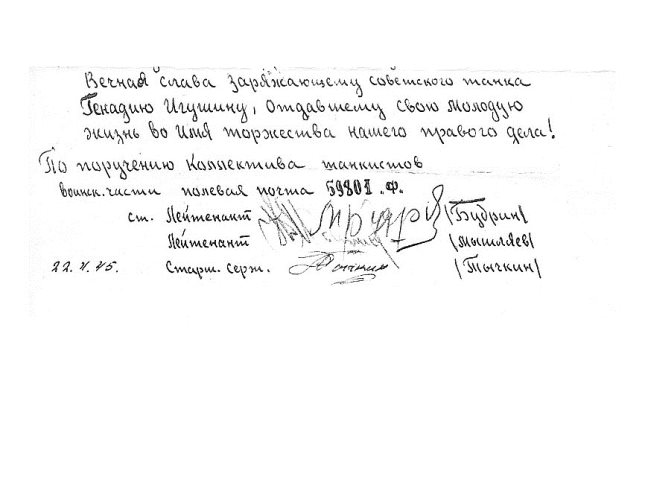 Вечная слава заряжающему советского танка
Генадию Игушину, отдавшему свою молодую
жизнь во имя торжества нашего правого дела!
По поручению коллектива танкистов
воинск. части полевая почта 59801 .Ф.
ст. Лейтенант /Бубрин/
Лейтенант /Мышляев/
22.V.45. Старш. серж. /Тычкин/